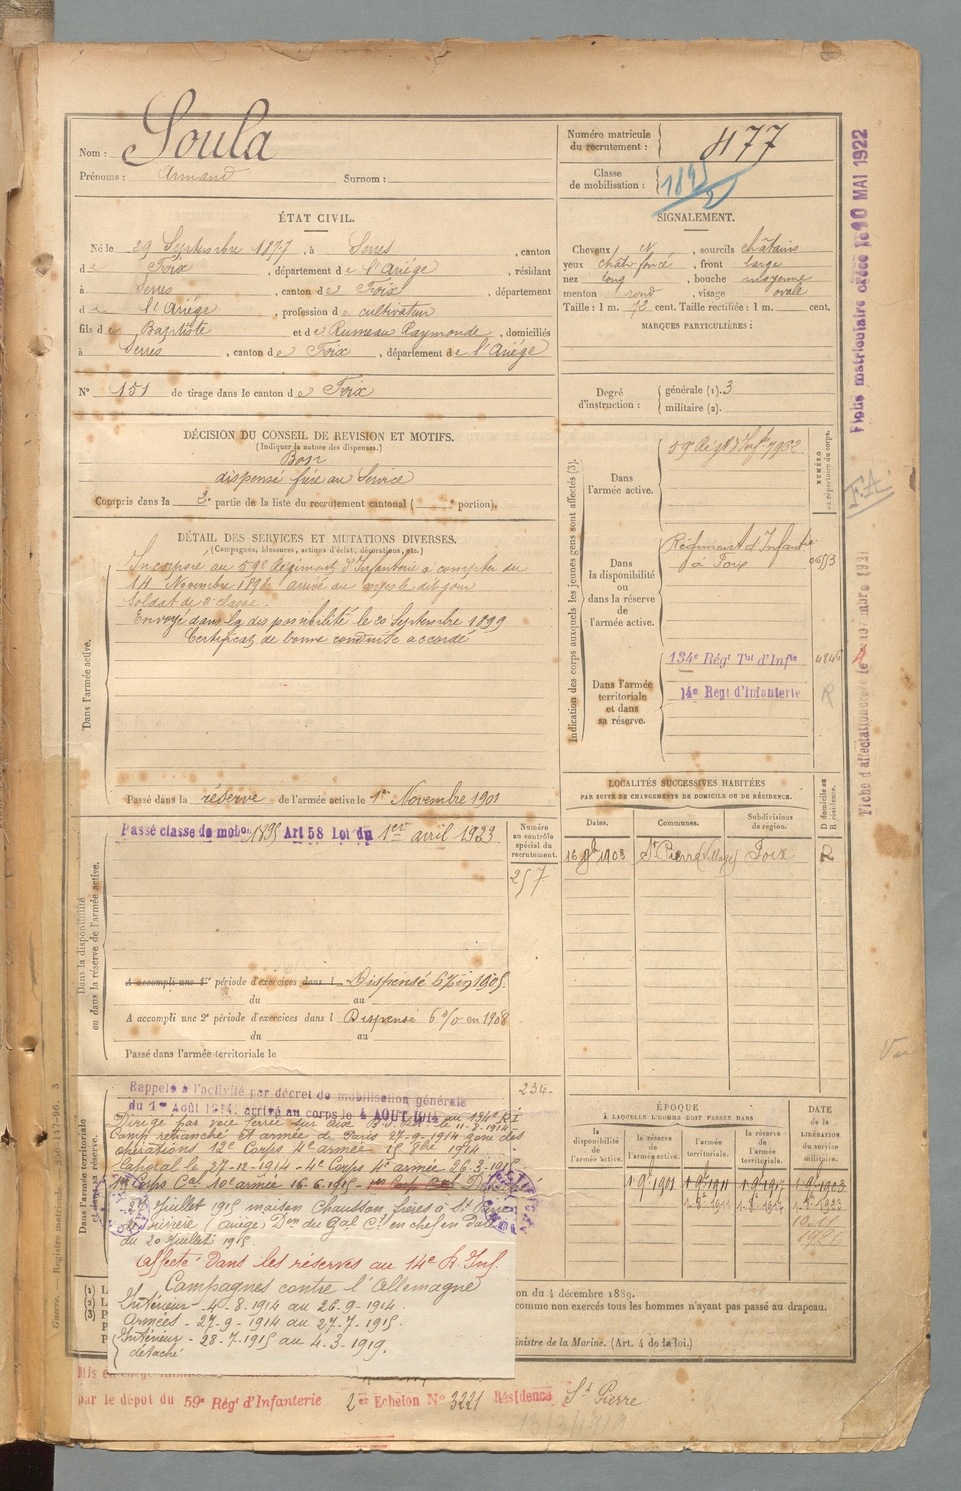 Nom : Soula
Prénoms : Armand Surnom :
Numéro matricule du recrutement : 477
Classe de mobilisation : 1895
ÉTAT CIVIL.
Né le 29 Septembre 1877, à Serres, canton
de Foix, département de l'Ariége, résidant
à Serres, canton de Foix, département
de l'Ariége, profession de cultivateur
fils de Baptiste et de Rumeau Raymonde, domiciliés
à Serres, canton de Foix, département de l'Ariége
N° 151 de tirage dans le canton de Foix
SIGNALEMENT.
Cheveux N, sourcils châtains
yeux chât. foncé, front large
nez long, bouche moyenne
menton rond, visage ovale
Taille : 1 m. 72 cent. Taille rectifiée : 1 m. cent.
MARQUES PARTICULIÈRES :
Degré d'instruction : générale (1). 3
militaire (2).
DÉCISION DU CONSEIL DE REVISION ET MOTIFS.
(Indiquer la nature des dispenses.)
Bon
dispensé frère au Service
Compris dans la 2e partie de la liste du recrutement cantonal ( e portion).
DÉTAIL DES SERVICES ET MUTATIONS DIVERSES.
(Campagnes, blessures, actions d'éclat, décorations, etc.)
Dans l'armée active.
Incorporé au 59e Régiment d'Infanterie à compter du
14 Novembre 1898 arrivé au corps le dit jour
Soldat de 2e classe.
Envoyé dans la disponibilité le 20 Septembre 1899
Certificat de bonne conduite accordé
Passé dans la réserve de l'armée active le 1er Novembre 1901
Indication des corps auxquels les jeunes gens sont affectés (3).
NUMÉRO au répertoire du corps.
Dans l'armée active.
59e Rég. d'Infie 7962
Dans la disponibilité ou dans la réserve de l'armée active.
Régiment d'Infanterie
à Foix
Dans l'armée territoriale et dans sa réserve.
134e Régt Tal d'Infie
14e Regt d'Infanterie
Dans la disponibilité ou dans la réserve de l'armée active.
Passé classe de mobon 1895 Art 58 Loi du 1er avril 1923
Numéro au contrôle spécial du recrutement.
257
A accompli une 1re période d'exercices dans l Dispensé 6% en 1905
du au
A accompli une 2e période d'exercices dans l Dispensé 6% en 1908
du au
Passé dans l'armée territoriale le
LOCALITÉS SUCCESSIVES HABITÉES
PAR SUITE DE CHANGEMENTS DE DOMICILE OU DE RÉSIDENCE.
Dates. Communes. Subdivisions de région. D domicile ou R résidence.
16 9b 1903 St Pierre (Village) Foix R
Dans l'armée territoriale et dans sa réserve.
234
Rappelé à l'activité par décret de mobilisation générale
du 1er Août 1914. arrivé au corps le 4 AOUT 1914 au 134e R.I.
Dirigé par voie ferrée sur le 11-8-1914
Camp retranché et armée de Paris 27-9-1914 zone des
opérations 12e Corps 4e armée 15 8bre 1914
Caporal le 27-12-1914 - 4e Corps 4e armée 26-3-1915
1er Corps Cal 10e armée 16-6-1915
28 Juillet 1915 maison Chausson frères à St Pierre
(Ariège) Don du Gal Ct en chef en date
du 20 Juillet 1915.
affecté dans les réserves au 14e R. Inf.
Campagnes contre l'Allemagne
Intérieur - 4-8-1914 au 26-9-1914
Armées - 27-9-1914 au 27-7-1915.
Intérieur - 28-7-1915 au 4-3-1919.
détaché
ÉPOQUE
À LAQUELLE L'HOMME DOIT PASSER DANS
la disponibilité de l'armée active. la réserve de l'armée active. l'armée territoriale. la réserve de l'armée territoriale.
DATE DE LA LIBÉRATION du service militaire.
1 9b 1901 1 9b 1911 1 9b 1917 1 9b 1923
on du 4 décembre 1889.
comme non exercés tous les hommes n'ayant pas passé au drapeau.
inistre de la Marine. (Art. 4 de la loi.)
par le dépot du 59e Régt d'Infanterie 2er Echelon N° 3221 Résidence St Pierre
13/3/1919
Fiche matriculaire créée le 10 MAI 1922
F.A
Guerre. Registre matricule.